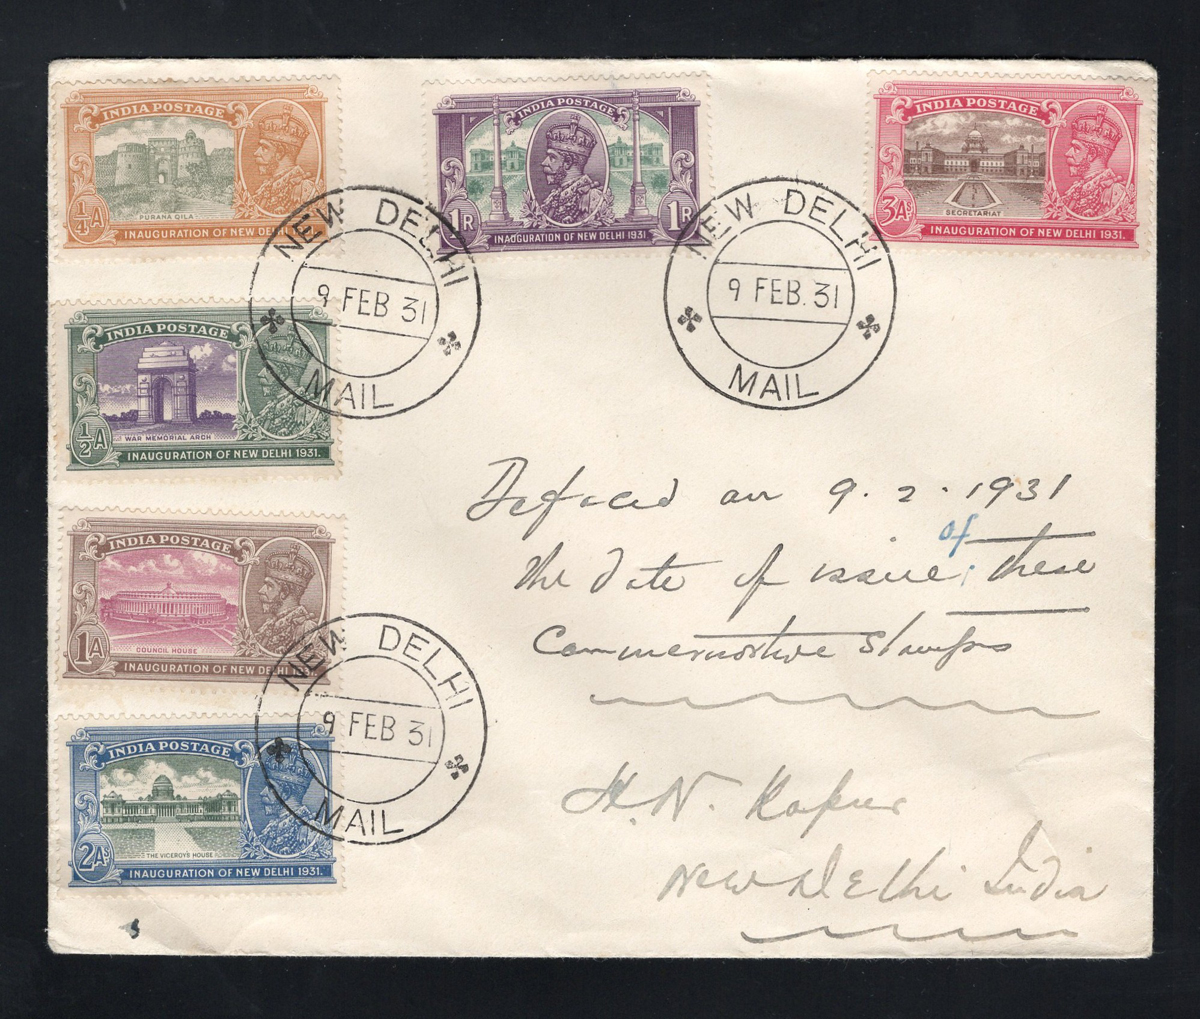 INDIA POSTAGE
PURANA QILA
¼A
INAUGURATION OF NEW DELHI
INDIA POSTAGE
1R 1R
INAUGURATION OF NEW DELHI 1931
INDIA POSTAGE
SECRETARIAT
3As
INAUGURATION OF NEW DELHI 1931.
NEW DELHI
9 FEB 31
MAIL
NEW DELHI
9 FEB. 31
MAIL
INDIA POSTAGE
WAR MEMORIAL ARCH
½A
INAUGURATION OF NEW DELHI 1931.
Defaced on 9.2.1931
of
the date of issue these
Commemorative Stamps
INDIA POSTAGE
COUNCIL HOUSE
1A
INAUGURATION OF NEW DELHI
NEW DELHI
9 FEB 31
MAIL
INDIA POSTAGE
THE VICEROYS HOUSE
2As
INAUGURATION OF NEW DELHI 1931.
H.N. Kapur
New Delhi India